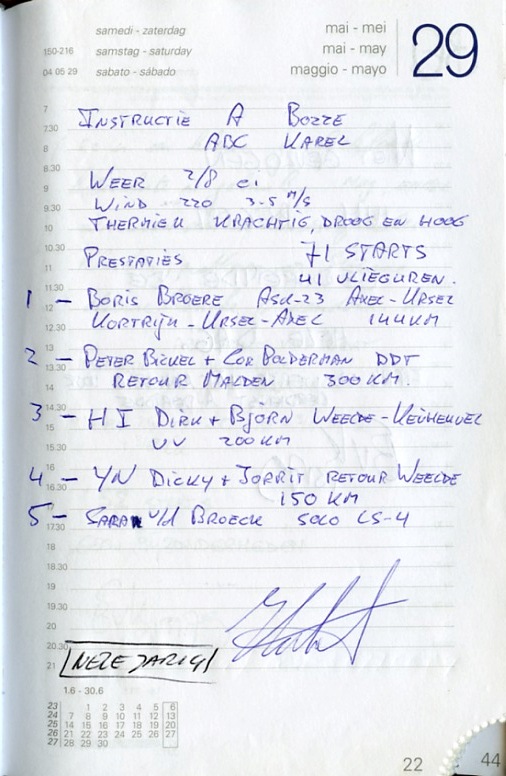 samedi - zaterdag
mai - mei
29
150-216
samstag - saturday
mai - may
04 05 29
sabato - sábado
maggio - mayo
7
INSTRUCTIE A BOZZE
7.30
8
ABC KAREL
8.30
WEER 2/8 ci
9
9.30
WIND 220 3-5 M/S
10
THERMIEK KRACHTIG, DROOG EN HOOG
10.30
PRESTATIES 71 STARTS
11
41 VLIEGUREN.
11.30
1 - BORIS BROERE ASK-23 AXEL-URSEL
12
KORTRIJK - URSEL - AXEL 144 KM
12.30
13
2 - PETER BICKEL + COR BOLDERMAN DDT
13.30
RETOUR MALDEN 300 KM.
14
14.30
3 - H I DIRK + BJÖRN WEELDE - KEIHEUVEL
15
VV 200 KM
15.30
16
4 - YN DICKY + JORRIT RETOUR WEELDE
16.30
150 KM
17
5 - SARA v/d BROECK SOLO LS-4
17.30
18
18.30
19
19.30
20
20.30
21
1.6 - 30.6
23 1 2 3 4 5 6
24 7 8 9 10 11 12 13
25 14 15 16 17 18 19 20
26 21 22 23 24 25 26 27
27 28 29 30
22
44